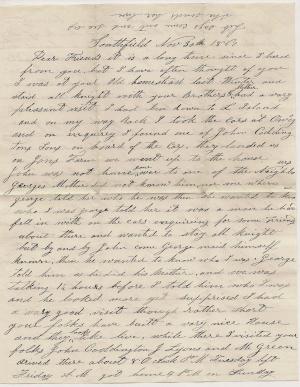 Southfield Nov 30th
Dear Friends it is a long time since I heard
from you, but I have often thought of you
I was at your old homestead last Winter and
staid all Knight with your Brothers had a very
pleasant visit I had been down to L Island
and on my way Back I took the cars at
and on inquirey I found one of John
Sons on board of the Car, they landed us
on Jons Farm we went up to the house
John was not home over to one of the Neighbors
Georges Mother did not know him nor me where
george told her who he was then she wanted to
who I was george told her it was a man he had
fell in with on the cars enquireing for some Friends
about there and wanted to stay all knight
but by and by John came George maid himself
known, then he wanted to know who I was George
told him as he did his Mother, and we was
talking ½ hours before I told him who I was
and he looked more yet surprised I had
a very good visit though rather short
your folks have built a very nice House
and they like live, which there I visited your
folks John Coddington & Lyons and Mr Green
arived there about 8 O clock P.M. Tuesday left
Friday A.M. got home 9 P.M. on Sunday